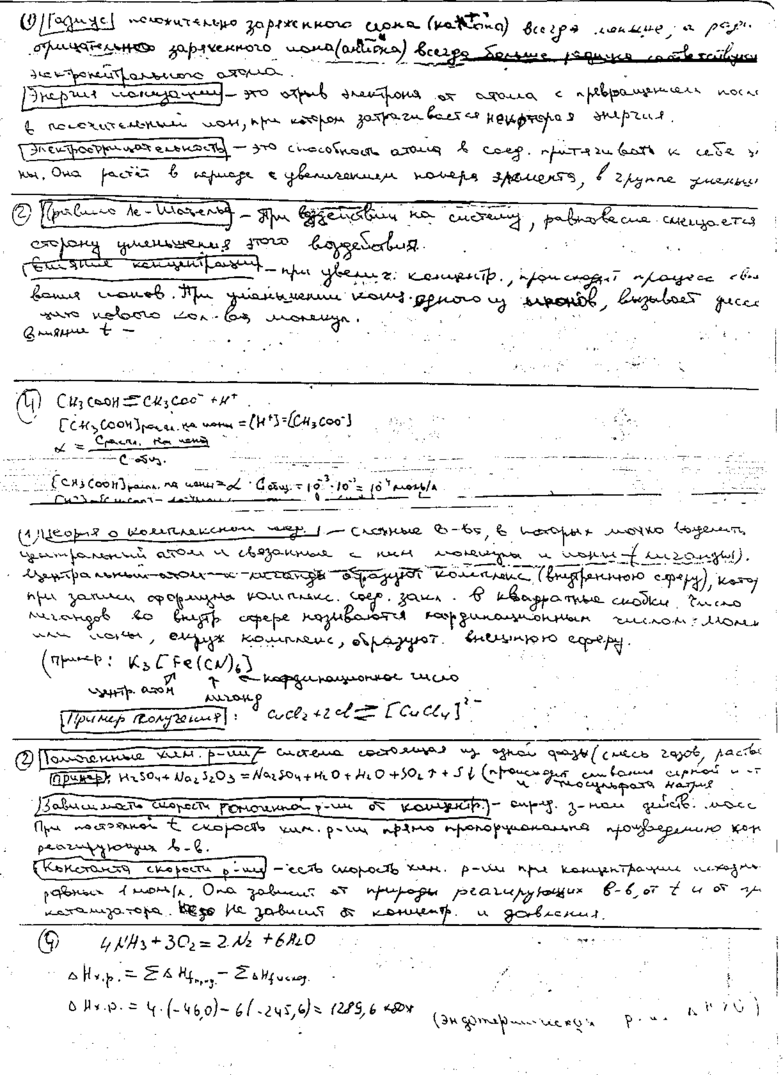 ① Радиус положительно заряженного иона (катиона) всегда меньше, а
отрицательно заряженного иона (аниона) всегда больше радиуса соответствующ
электронейтрального атома.
Энергия ионизации – это отрыв электрона от атома с превращением
в положительный ион, при котором затрачивается некоторая энергия.
Электроотрицательность – это способность атома в соед. притягивать к себе э
ны. Она растёт в периоде с увеличением номера элемента, в группе уменьш
② Правило Ле-Шателье – При воздействии на систему, равновесие смещается
сторону уменьшения этого воздействия.
Влияние концентрации – при увелич. концентр., происходит процесс
вания ионов. При уменьшении конц. одного из ионов, вызывает дисс
цию нового кол-ва молекул.
Влияние t –
④ CH₃COOH ⇄ CH₃COO⁻ + H⁺
[CH₃COOH]расп. на ионы = [H⁺] = [CH₃COO⁻]
α = Cрасп. на ионы
Cобщ.
[CH₃COOH]расп. на ионы = α · Cобщ. = 10⁻³ · 10⁻¹ = 10⁻⁴ моль/л
① Теория о комплексной – сложные в-ва, в которых можно выделить
центральный атом и связанные с ним молекулы и ионы – (лиганды).
Центральный атом и лиганды образуют комплекс (внутреннюю сферу), котор
при записи формулы комплекс. соед. закл. в квадратные скобки. Число
лигандов во внутр сфере называются координационным числом.
или ионы, окруж комплекс, образуют внешнюю сферу.
(Пример: K₃[Fe(CN)₆]
← координационное число
центр. атом лиганд
Пример получения: CuCl₂ + 2Cl ⇄ [CuCl₄]²⁻
② Гомогенные хим. р-ции – система состоящая из одной фазы (смесь газов, раство
Пример: H₂SO₄ + Na₂S₂O₃ = Na₂SO₄ + H₂O + H₂O + SO₂↑ + S↓ (происходит сливание серной к-т
и тиосульфата натрия
Зависимость скорости гомогенной р-ции от концентр. – опред. з-ном действ. масс
При постоянной t скорость хим. р-ции прямо пропорциональна произведению кон
реагирующих в-в.
Константа скорости р-ции – есть скорость хим. р-ции при концентрации исходн
равных 1 моль/л. Она зависит от природы реагирующих в-в, от t и от
катализатора. Не зависит от концентр. и давления.
④ 4NH₃ + 3O₂ = 2N₂ + 6H₂O
ΔHх.р. = ΣΔHf прод. – ΣΔHf исход.
ΔHх.р. = 4·(-46,0) – 6(-245,6) = 1289,6 кДж
(эндотермическая р-ция ΔH>0)